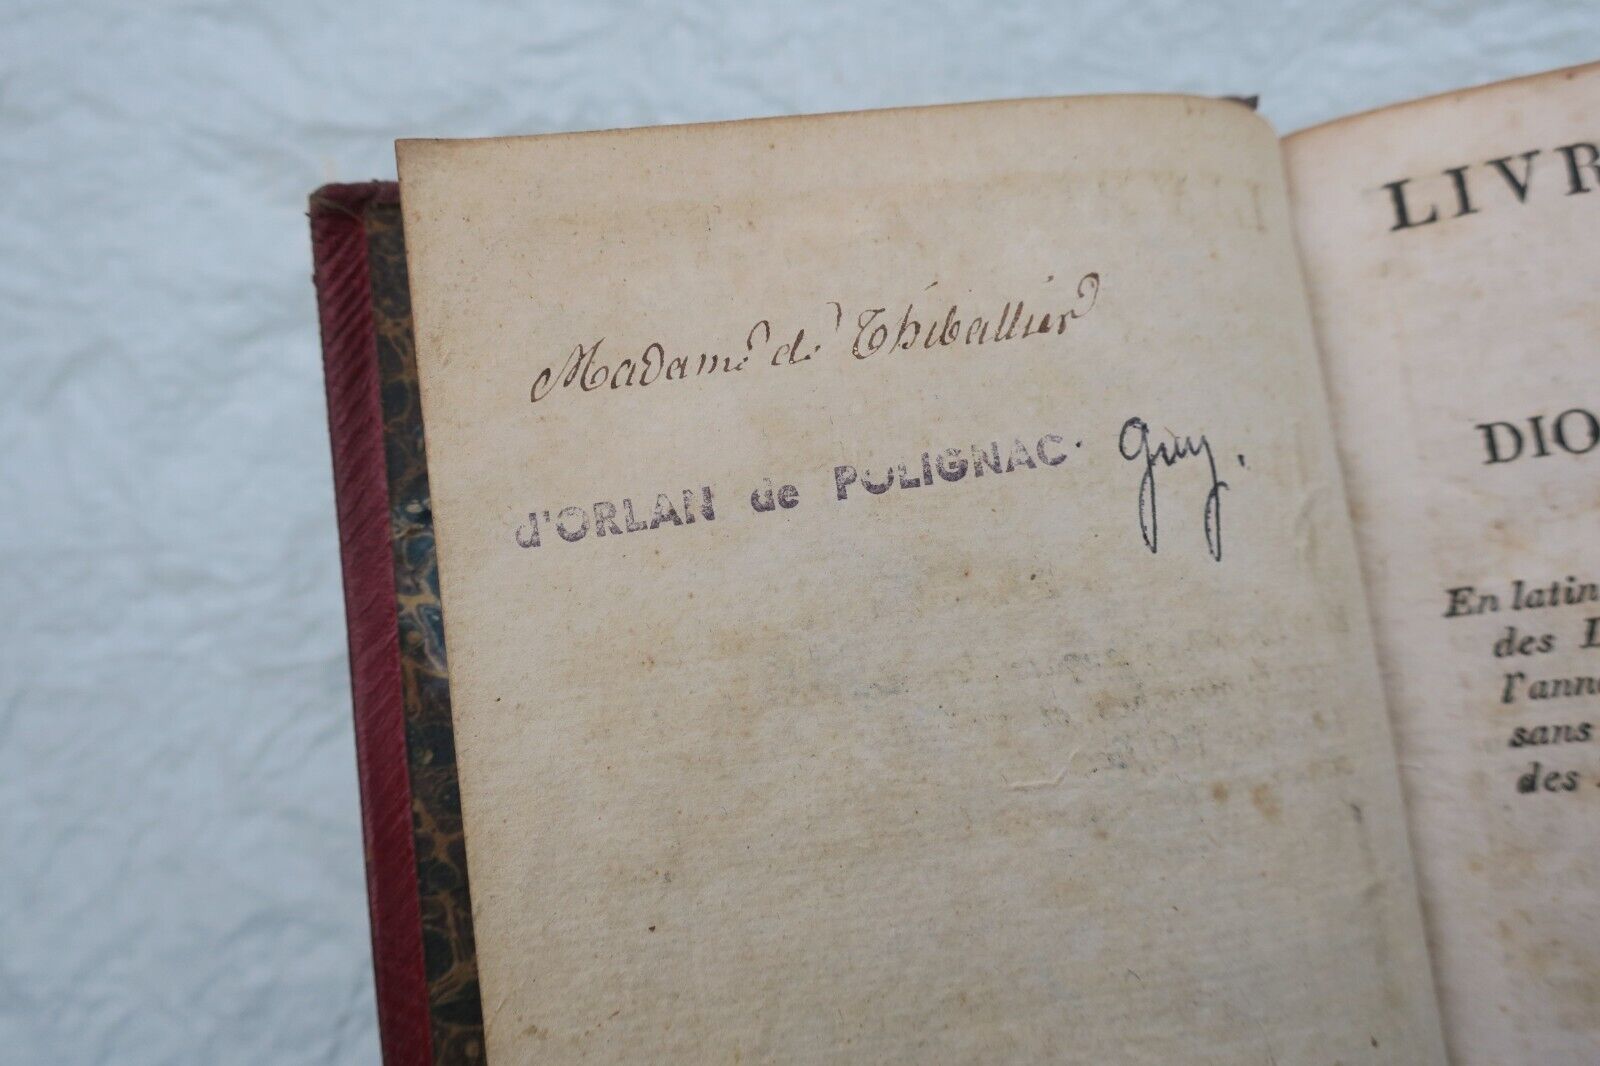 Madame de Thiballier
d'ORLAN de POLIGNAC. Guy.
LIVR
DIO
En latin
des
l'ann
sans
des